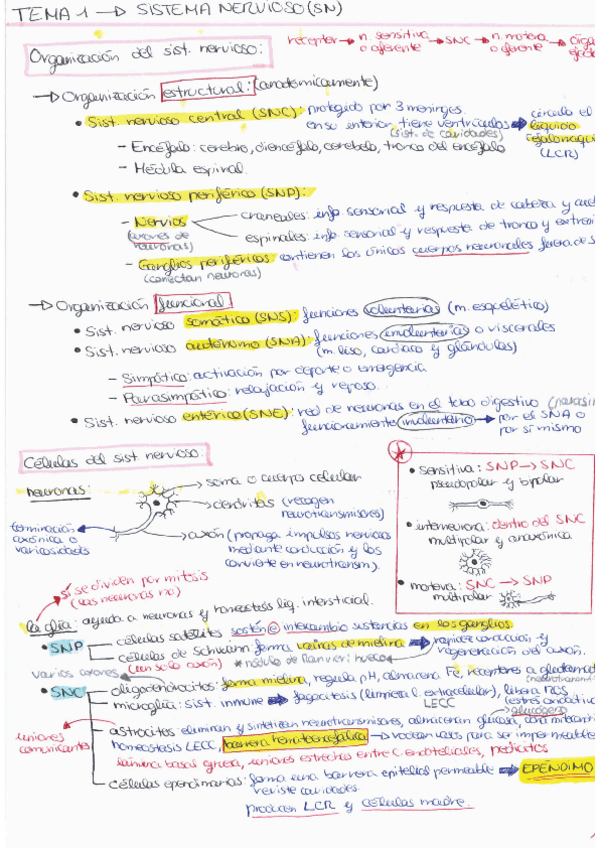 TEMA 1 → SISTEMA NERVIOSO (SN)
receptor → n. sensitiva o aferente → SNC → n. motora o eferente →
Organización del sist. nervioso:
→ Organización estructural: (anatómicamente)
• Sist. nervioso central (SNC): protegido por 3 meninges.
en su interior tiene ventrículos → circula el
(sist. de cavidades) líquido
(LCR)
- Encéfalo: cerebro, diencéfalo, cerebelo, tronco del encéfalo
- Médula espinal.
• Sist. nervioso periférico (SNP):
- Nervios
(axones de neuronas)
craneales: info sensorial y respuesta de cabeza y
espinales: info sensorial y respuesta de tronco y
- Ganglios periféricos contienen los únicos cuerpos neuronales fuera de
(conectan neuronas)
→ Organización funcional:
• Sist. nervioso somático (SNS): funciones voluntarias (m. esquelético)
• Sist. nervioso autónomo (SNA): funciones involuntarias o viscerales
(m. liso, cardíaco y glándulas)
- Simpático: activación por deporte o emergencia
- Parasimpático: relajación y reposo.
• Sist. nervioso entérico (SNE): red de neuronas en el tubo digestivo
funcionamiento involuntario → por el SNA o
por sí mismo
Células del sist nervioso:
neuronas:
soma o cuerpo celular
dendritas (recogen neurotransmisores)
axón (propaga impulsos nerviosos
mediante conducción y los
convierte en neurotransm).
terminación axónica o varicosidades
• sensitiva: SNP → SNC
pseudopolar y bipolar
• interneurona: dentro del SNC
multipolar y anaxónica
• motora: SNC → SNP
multipolar
sí se dividen por mitosis
(las neuronas no)
La glía: ayuda a neuronas y homeostasis liq. intersticial.
• SNP
células satélites sostén e intercambio sustancias en los ganglios.
células de Schwann forma vainas de mielina → rapidez conducción y
regeneración del axón.
(en un solo axón) * nódulo de Ranvier: hueco
varios axones
• SNC
oligodendrocitos: forma mielina, regula pH, almacena Fe, receptores a glutamato
microglía: sist. inmune → fagocitosis (limpieza l. extracelular), libera ROS
LECC
glucógeno
astrocitos: eliminan y sintetizan neurotransmisores, almacenan glucosa,
uniones comunicantes
homeostasis LECC, barrera hematoencefálica → rodean vasos para ser impermeables
lámina basal gruesa, uniones estrechas entre C. endoteliales, pedicitos
células ependimarias: forma una barrera epitelial permeable → EPÉNDIMO
reviste cavidades
producen LCR y células madre.